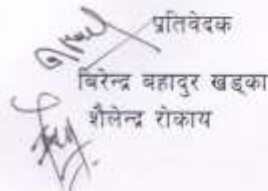 प्रतिवेदक
बिरेन्द्र बहादुर खड्का
शैलेन्द्र रोकाय